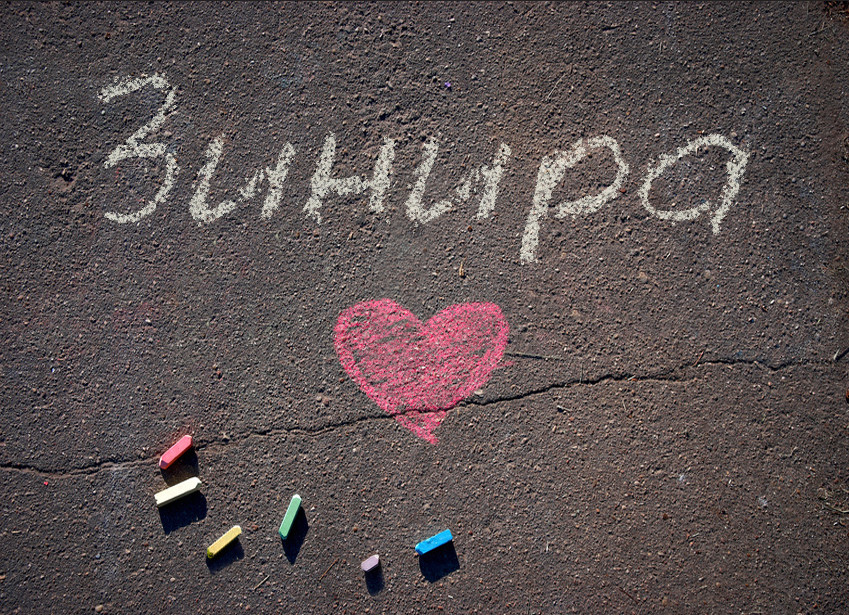 Зинира